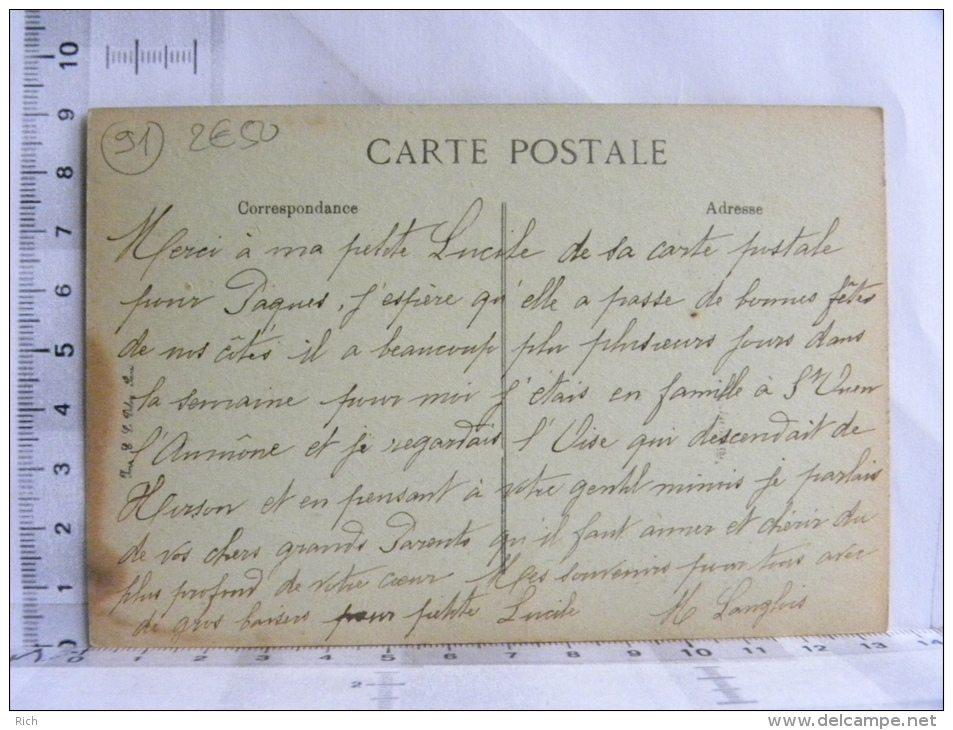 91 2€50
CARTE POSTALE
Correspondance
Adresse
Merci à ma petite Lucile de sa carte postale
pour Pâques, j'espère qu'elle a passe de bonnes fêtes
de nos côtés il a beaucoup plu plusieurs jours dans
la semaine pour moi j'étais en famille à St Ouen
l'Aumône et je regardais l'Oise qui descendait de
Hirson et en pensant à votre gentil minois je parlais
de vos chers grands Parents qu'il faut aimer et chérir du
plus profond de votre cœur Mes souvenirs pour tous avec
de gros baisers pour petite Lucile M Langlois
10
9
8
7
6
5
4
3
2
1
0
0 1 2 3 4 5 6 7 8 9 10 11 12 13 14
2
Rich
www.delcampe.net